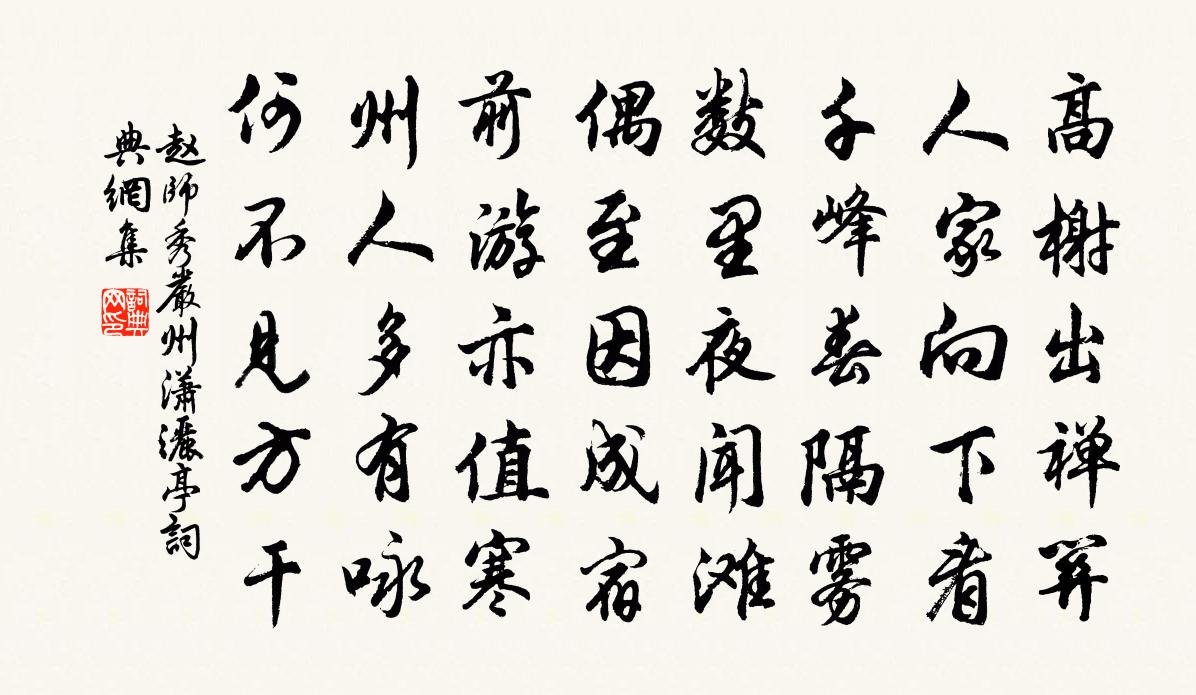 高榭出禅关
人家向下看
千峰春隔雾
数里夜闻滩
偶至因成宿
前游亦值寒
州人多有咏
何不见方干
赵師秀嚴州瀟灑亭詞
典網集
詞典
网印